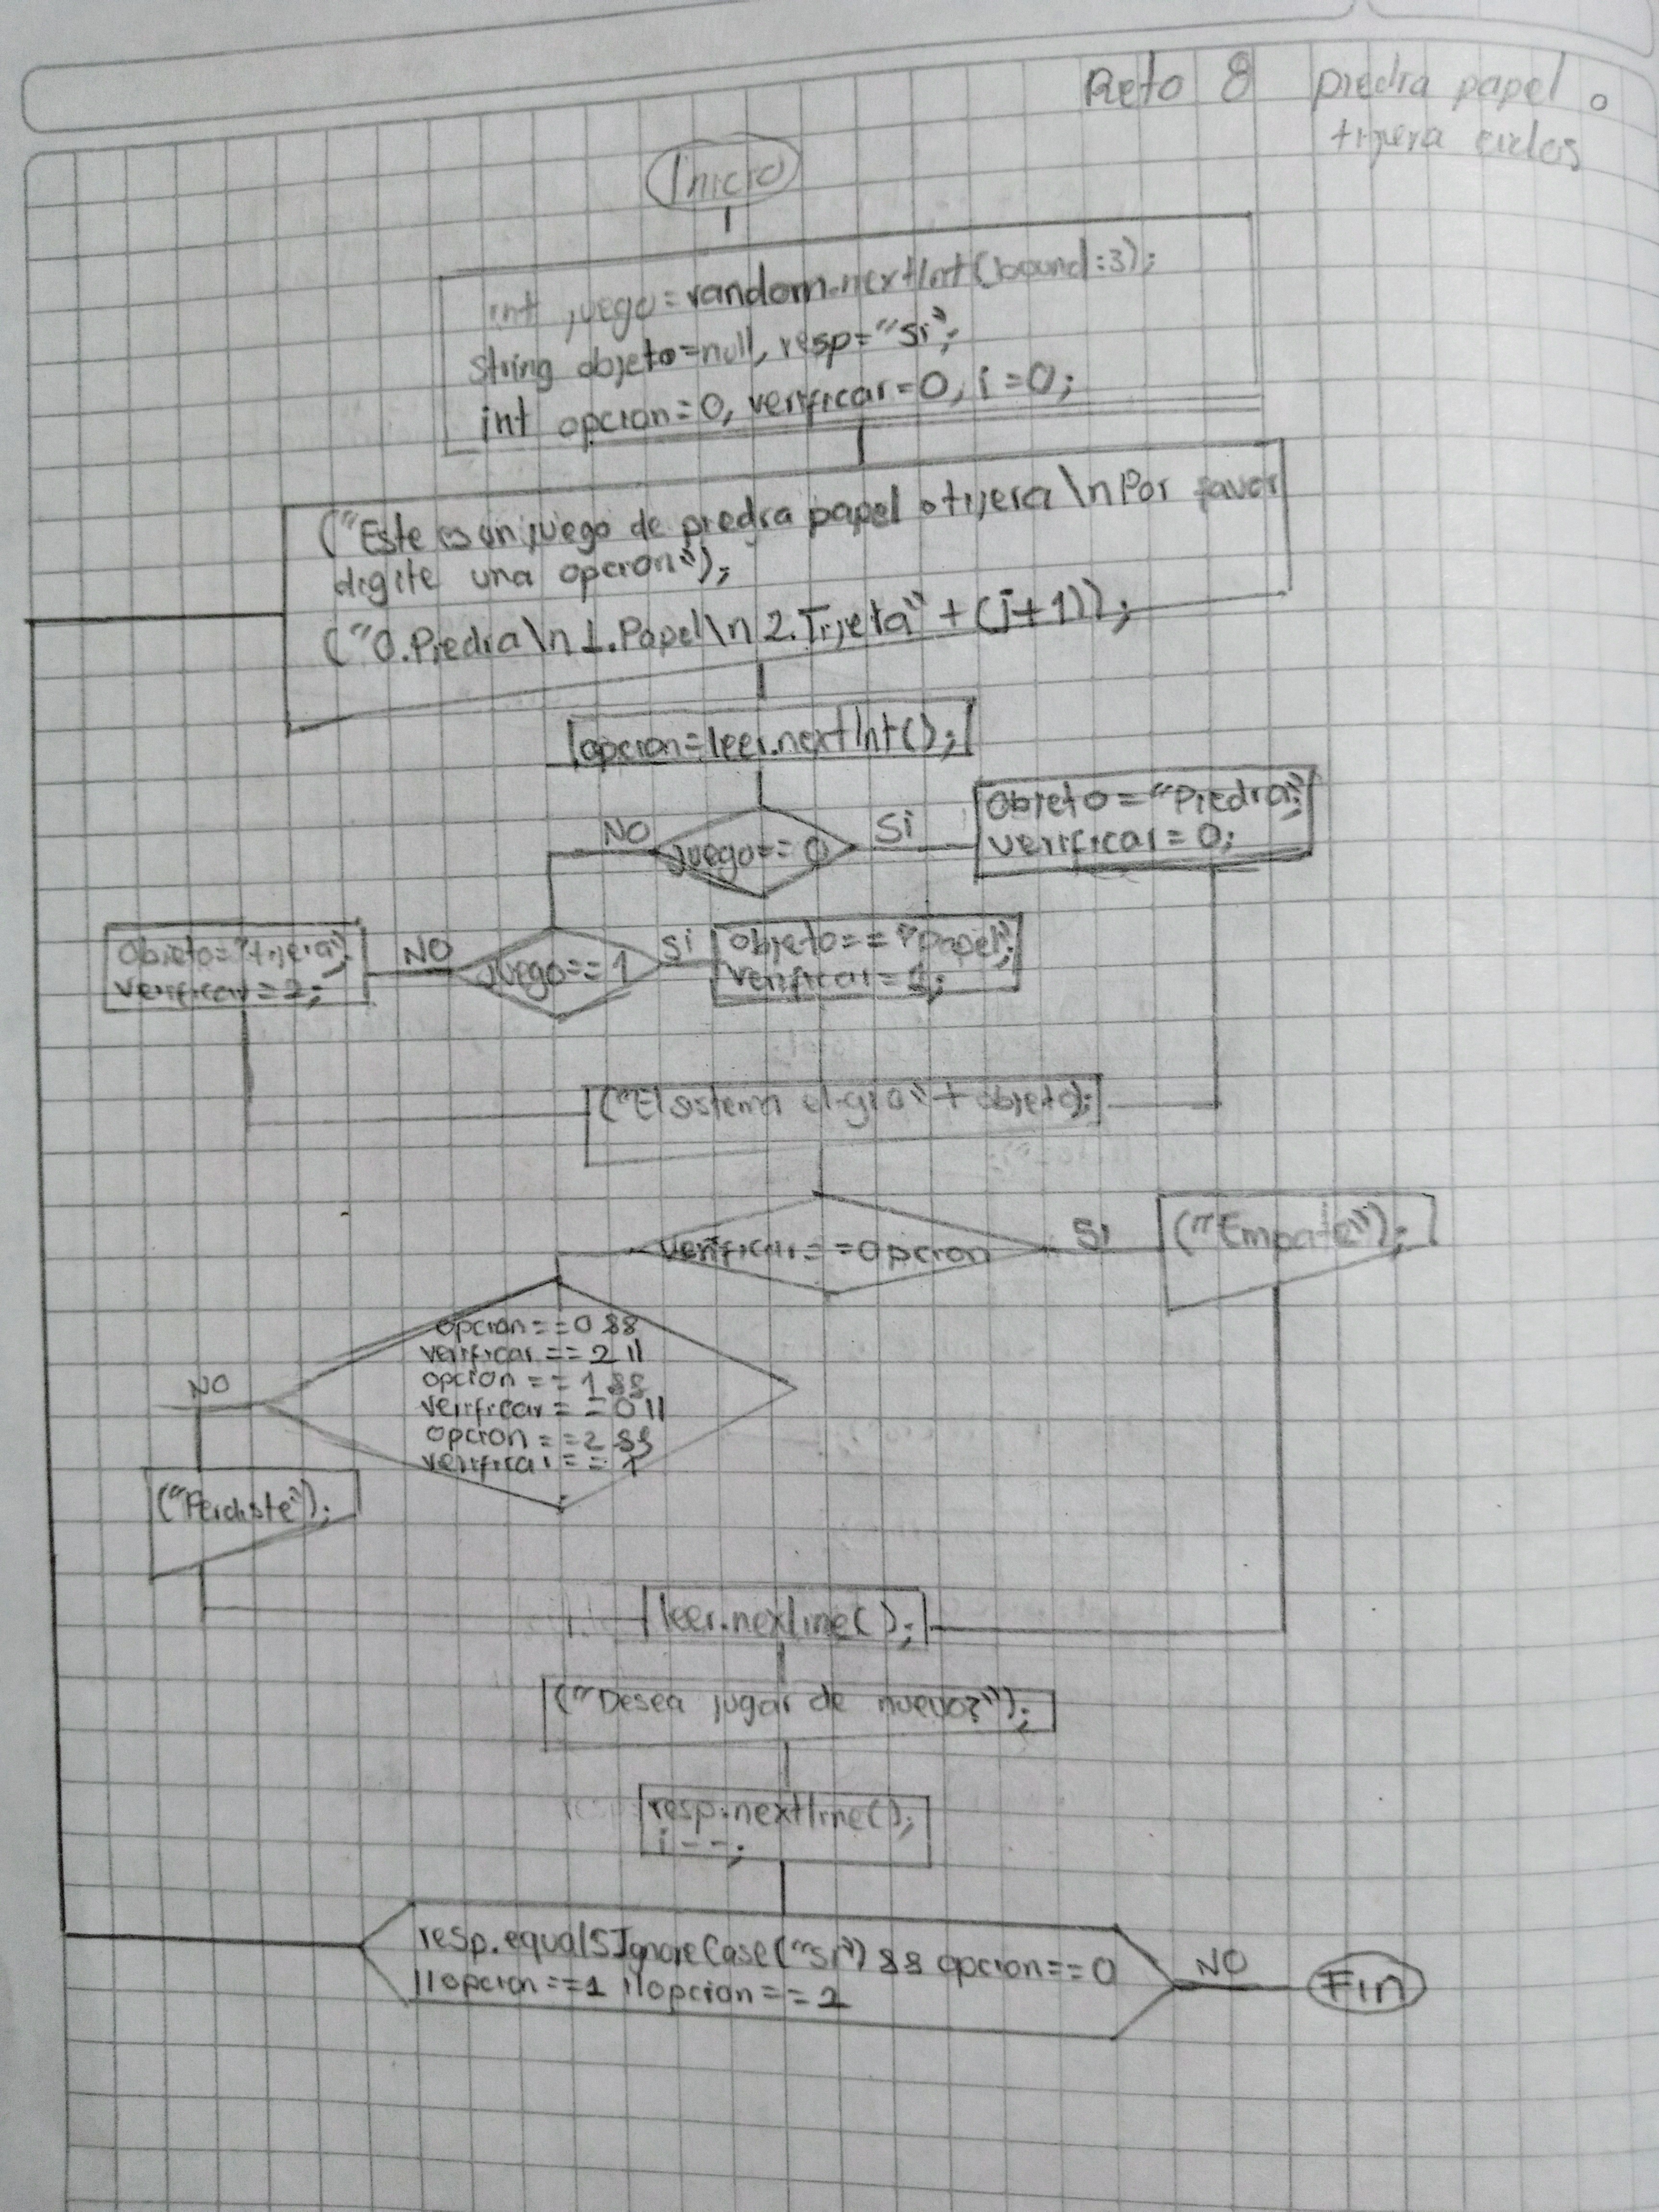 Reto 8 piedra papel o
tijera ciclos
Inicio
int juego=random.nextInt(bound:3);
string objeto=null, resp="si";
int opcion=0, verificar=0, i=0;
("Este es un juego de piedra papel o tijera \n Por favor
digite una opcion");
("0.Piedra\n 1.Papel\n 2.Tijeta" + (i+1));
opcion=leer.nextInt();
NO juego==0 Si
objeto="Piedra";
verificar=0;
objeto="tijera";
verificar=2;
NO juego==1 Si
objeto=="Papel";
verificar=1;
("El sistema eligio"+objeto);
verificar==opcion Si ("Empate");
opcion==0 &&
verificar==2 ||
opcion==1 &&
verificar==0 ||
opcion==2 &&
verificar==1
NO
("Perdiste");
leer.nextline();
("Desea jugar de nuevo?");
resp.nextline();
i--;
resp.equalSIgnoreCase("si") && opcion==0
||opcion==1 ||opcion==2
NO Fin